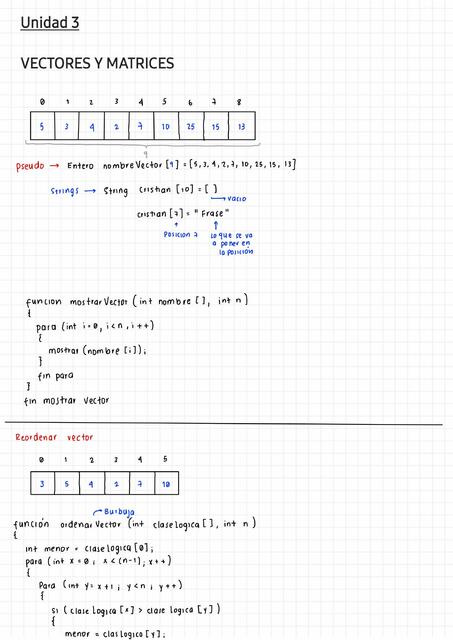 Unidad 3
VECTORES Y MATRICES
0 1 2 3 4 5 6 7 8
5 3 4 2 7 10 25 15 13
9
pseudo → Entero nombreVector [9] = [5, 3, 4, 2, 7, 10, 25, 15, 13]
Strings → String cristian [10] = [ ]
→ vacio
cristian [7] = "Frase"
Posicion 7
lo que se va
a poner en
la posición
funcion mostrarVector (int nombre [], int n)
{
para (int i=0, i<n, i++)
{
mostrar (nombre [i]);
}
fin para
}
fin mostrar vector
Reordenar vector
0 1 2 3 4 5
3 5 4 2 7 10
Burbuja
función ordenarVector (int claselogica [], int n)
{
int menor = claselogica [0];
para (int x=0; x<(n-1); x++)
{
Para (int y=x+1; y<n; y++)
{
si (claselogica [x] > claselogica [y])
{
menor = claslogica [y];